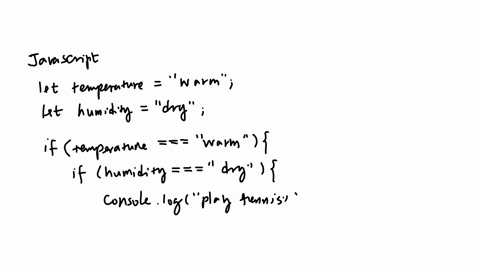 Javascript
let temperature = "warm";
let humidity = "dry";
if (temperature === "warm") {
if (humidity === "dry") {
console.log("play tennis"